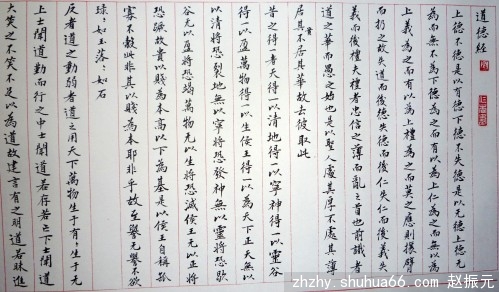 道德經
上德不德是以有德下德不失德是以无德上德无
為而無不為下德為之而有以為上仁為之而無以為
上義為之而有以為上禮為之而莫之應則攘臂
而扔之故失道而後德失德而後仁失仁而後義失
義而後禮夫禮者忠信之薄而亂之首也前識者
道之華而愚之始也是以聖人處其厚不處其薄
居其實不居其華故去彼取此
昔之得一者天得一以清地得一以寧神得一以靈谷
得一以盈萬物得一以生侯王得一以為天下正天無以
以清將恐裂地無以寧將恐發神無以靈將恐歇
谷无以盈將恐竭萬物无以生將恐滅侯王无以正將
恐蹶故貴以賤為本高以下為基是以侯王自稱孤
寡不穀此非其以賤為本耶非乎故至譽无譽不欲
琭：如玉落：如石
反者道之動弱者道之用天下萬物生于有：生于无
上士聞道勤而行之中士聞道若存若亡下士聞道
大笑之不笑不足以為道故建言有之明道若昧進
zhzhy.shuhua66.com 赵振元